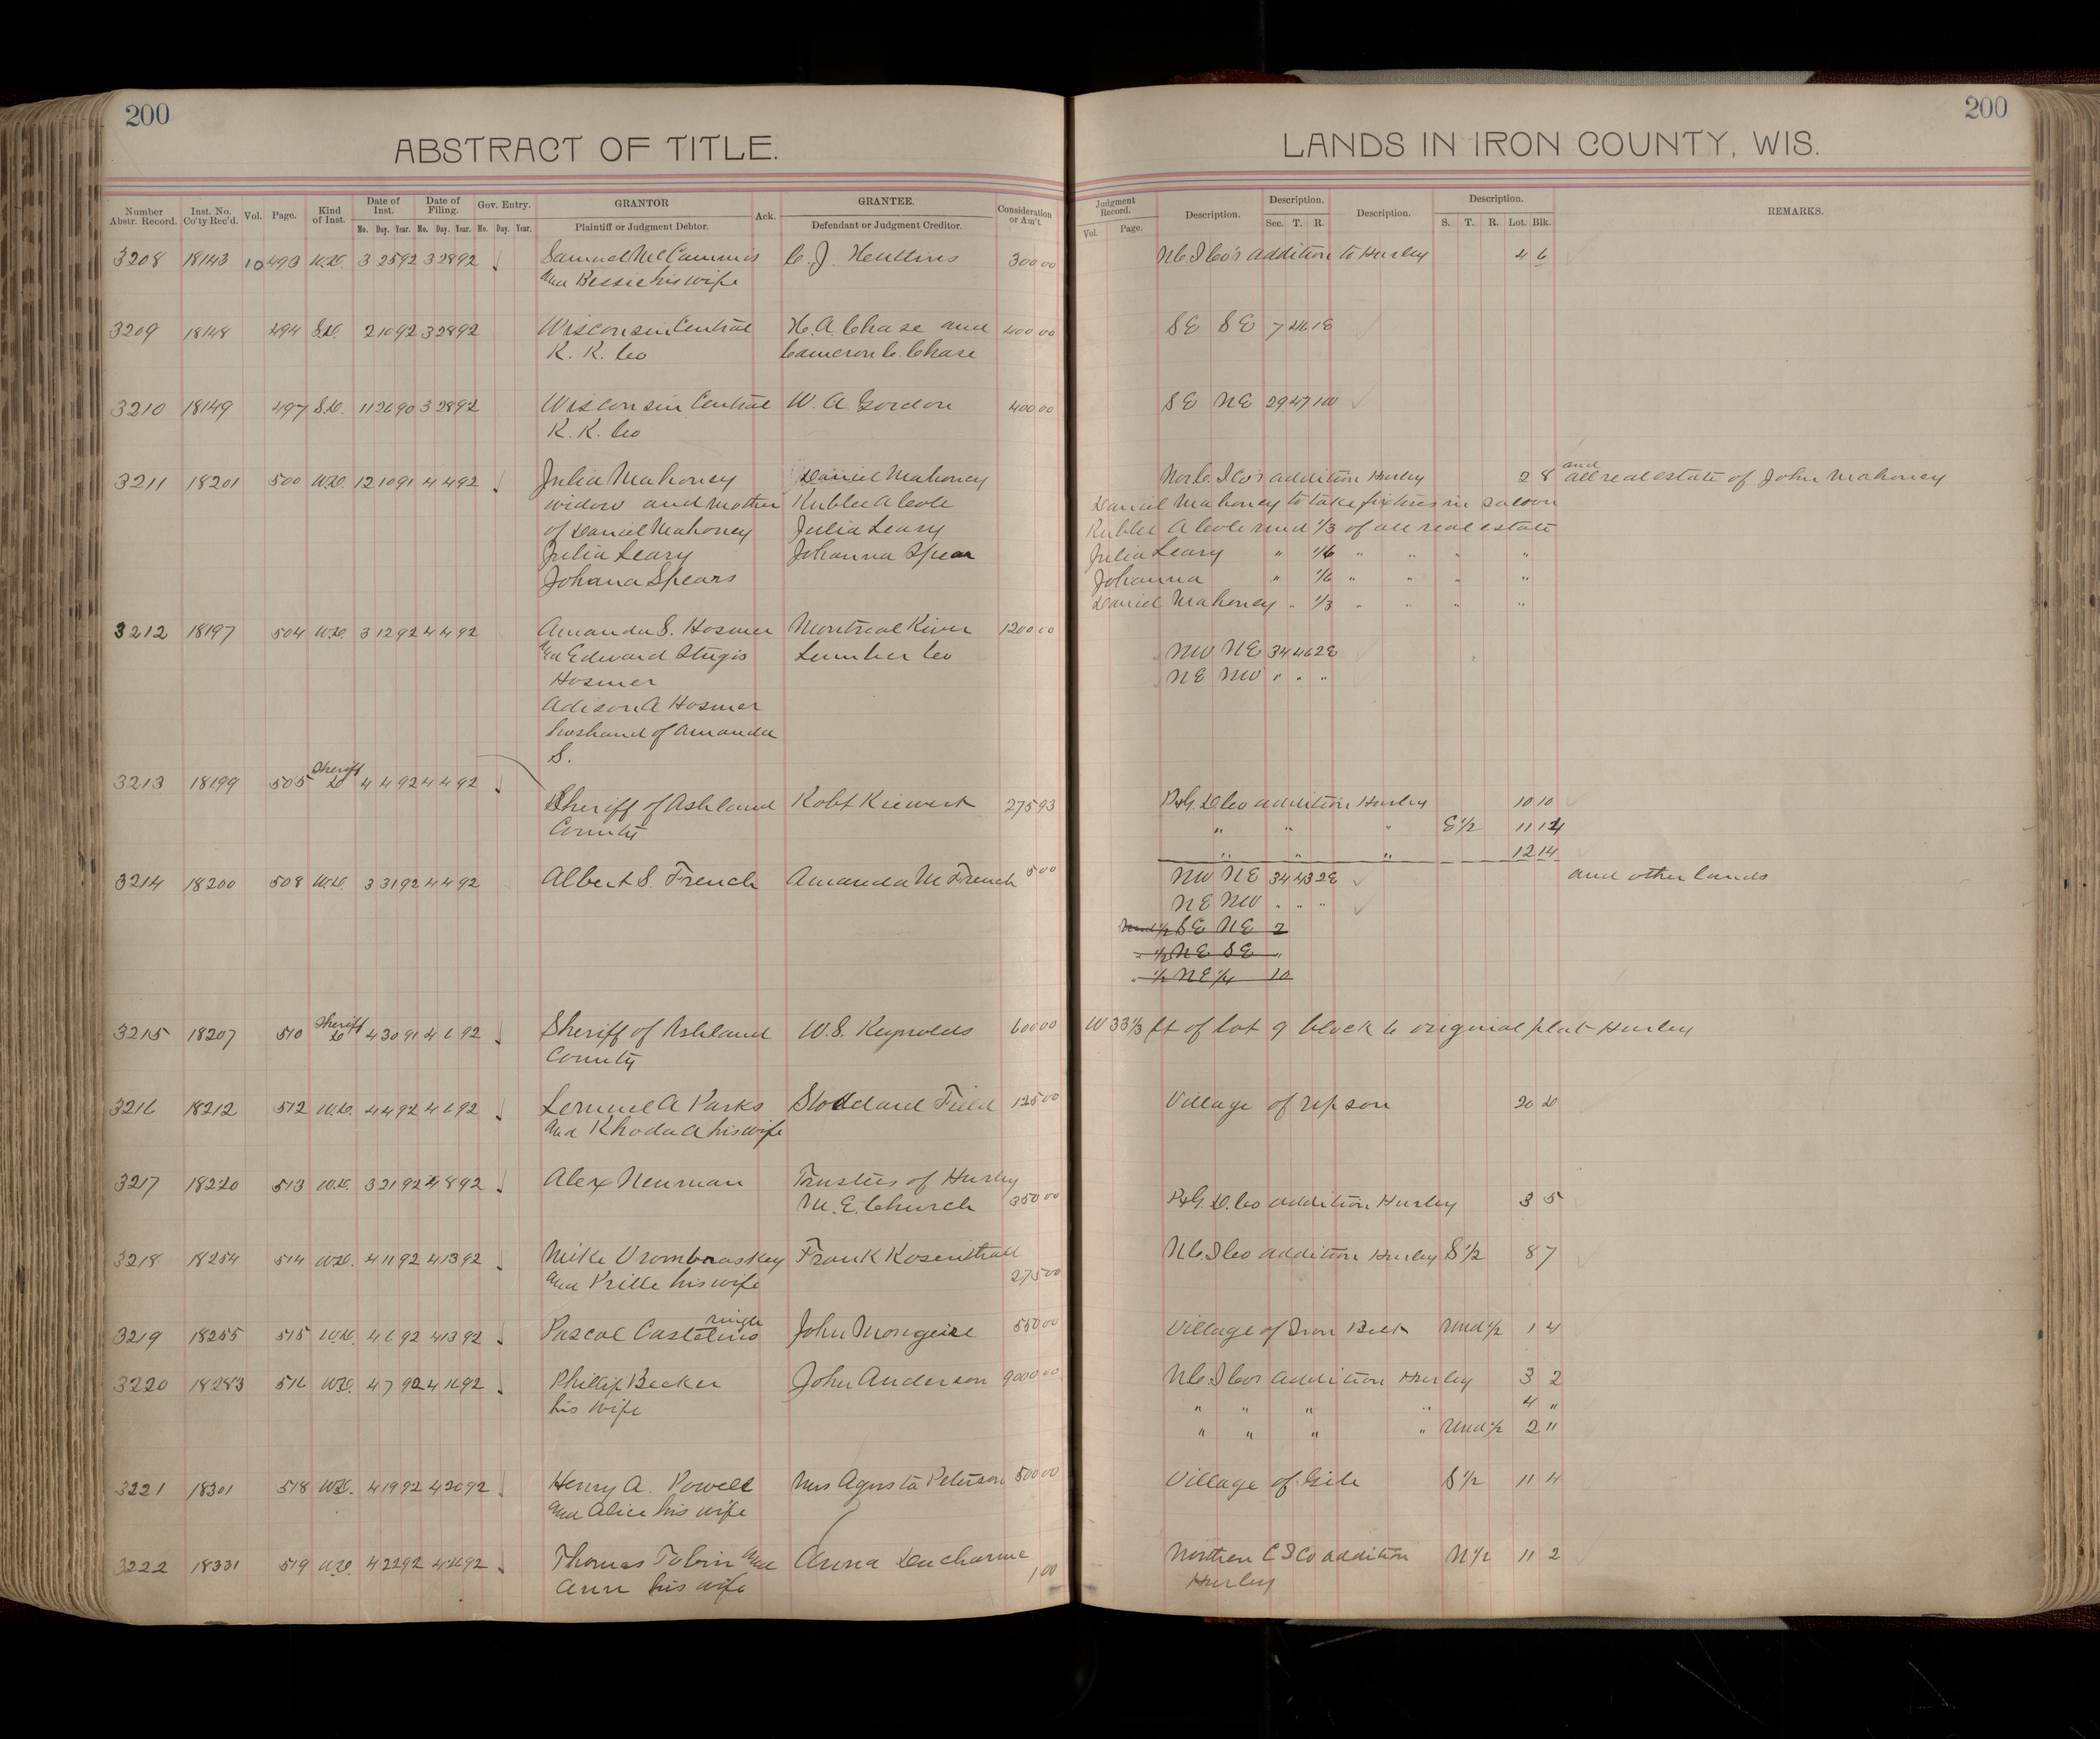 200
200
ABSTRACT OF TITLE.
LANDS IN IRON COUNTY, WIS.
Number Abstr. Record. Inst. No. Co'ty Rec'd. Vol. Page. Kind of Inst. Date of Inst. Date of Filing. Gov. Entry. GRANTOR Ack. GRANTEE. Consideration or Am't. Judgment Record. Description. Description. Description. Description. REMARKS.
Mo. Day. Year. Mo. Day. Year. Mo. Day. Year. Plaintiff or Judgment Debtor. Defendant or Judgment Creditor. Vol. Page. Sec. T. R. S. T. R. Lot. Blk.
3208 18143 10 493 W.D. 3 25 92 3 28 92 Samuel McCammis C. J. 300 00 N C I Co's addition to Hurley 4 6
and Bessie his wife
3209 18148 494 S.D. 2 10 92 3 28 92 Wisconsin Central H. A. Chase and 400 00 SE SE 7 46 1E
R. R. Co Cameron C. Chase
3210 18149 497 S.D. 11 26 90 3 28 92 Wisconsin Central W. A. Gordon 400 00 SE NE 29 47 1W
R. R. Co
and
3211 18201 500 W.D. 12 10 91 4 4 92 Julia Mahoney Daniel Mahoney Nor C. I Co's addition Hurley 2 8 all real estate of John Mahoney
widow and mother Rublee A Cole Daniel Mahoney to take fixtures in saloon
of Daniel Mahoney Julia Leary Rublee A Cole und 1/3 of all real estate
Julia Leary Johanna Spear Julia Leary " 1/6 " " " "
Johana Spears Johanna " 1/6 " " " "
Daniel Mahoney " 1/3 " " " "
3212 18197 504 W.D. 3 12 92 4 4 92 Amanda S. Hosmer Montreal River 1200 00
and Edward Stugis Lumber Co NW NE 34 46 2E
Hosmer NE NW " " "
Adison A Hosmer
husband of Amanda
S.
Sheriff
3213 18199 505 D 4 4 92 4 4 92
Sheriff of Ashland Robt Kiewert 275 93 P&G. D Co addition Hurley 10 10
County " " " E 1/2 11 14
" " " 12 14
3214 18200 508 W.D. 3 31 92 4 4 92 Albert S. French Amanda M French 5 00 NW NE 34 43 2E and other lands
NE NW " " "
Und 1/2 SE NE 2
" 1/2 NE SE "
" 1/2 NE 1/4 10
Sheriff
3215 18207 510 D 4 30 91 4 6 92 Sheriff of Ashland W. S. Reynolds 600 00 W 33 1/3 ft of lot 9 block 6 original plat Hurley
County
3216 18212 512 W.D. 4 4 92 4 6 92 Lemuel A Parks Stoddard Field 125 00 Village of Upson 20 20
and Rhoda A his wife
3217 18220 513 W.D. 3 21 92 4 8 92 Alex Neuman Trustees of Hurley
M. E. Church 350 00 P&G. D. Co addition Hurley 3 5
3218 18254 514 W.D. 4 11 92 4 13 92 Mike Frank Rosenthall N C. I Co addition Hurley S 1/2 8 7
and Prille his wife 275 00
3219 18255 515 W.D. 4 6 92 4 13 92 Pascal John 550 00 Village of Iron Belt Und 1/2 1 4
3220 18283 516 W.D. 4 7 92 4 16 92 Phillip Becker John Anderson 9000 00 N C. I Co's addition Hurley 3 2
his wife " " " " 4 "
" " " " Und 1/2 2 "
3221 18301 518 W.D. 4 19 92 4 20 92 Henry A. Powell Mrs Agusta Peterson 500 00 Village of Gile S 1/2 11 4
and Alice his wife
3222 18331 519 W.D. 4 22 92 4 26 92 Thomas Tobin and Anna Ducharme 1 00 Northern C I Co addition N 1/2 11 2
Ann his wife Hurley